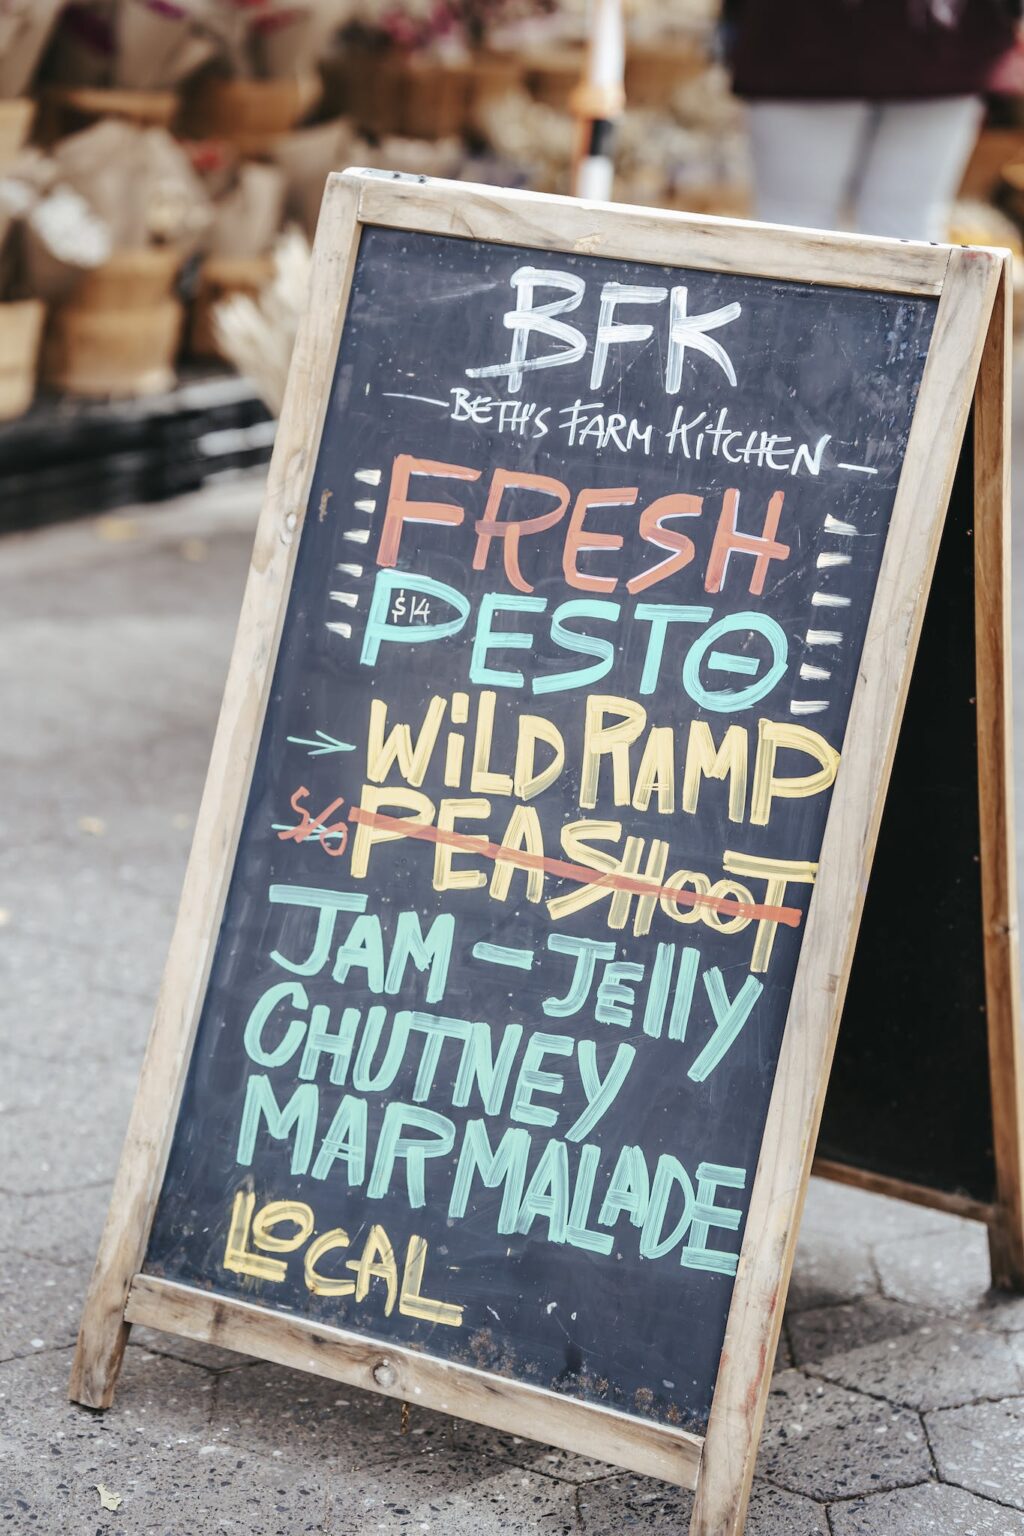 BFK
BETH'S FARM KITCHEN
FRESH
PESTO
$14
WiLD RAMP
S/O PEA SHOOT
JAM - JElly
CHUTNEY
MARMALADE
LOCAL